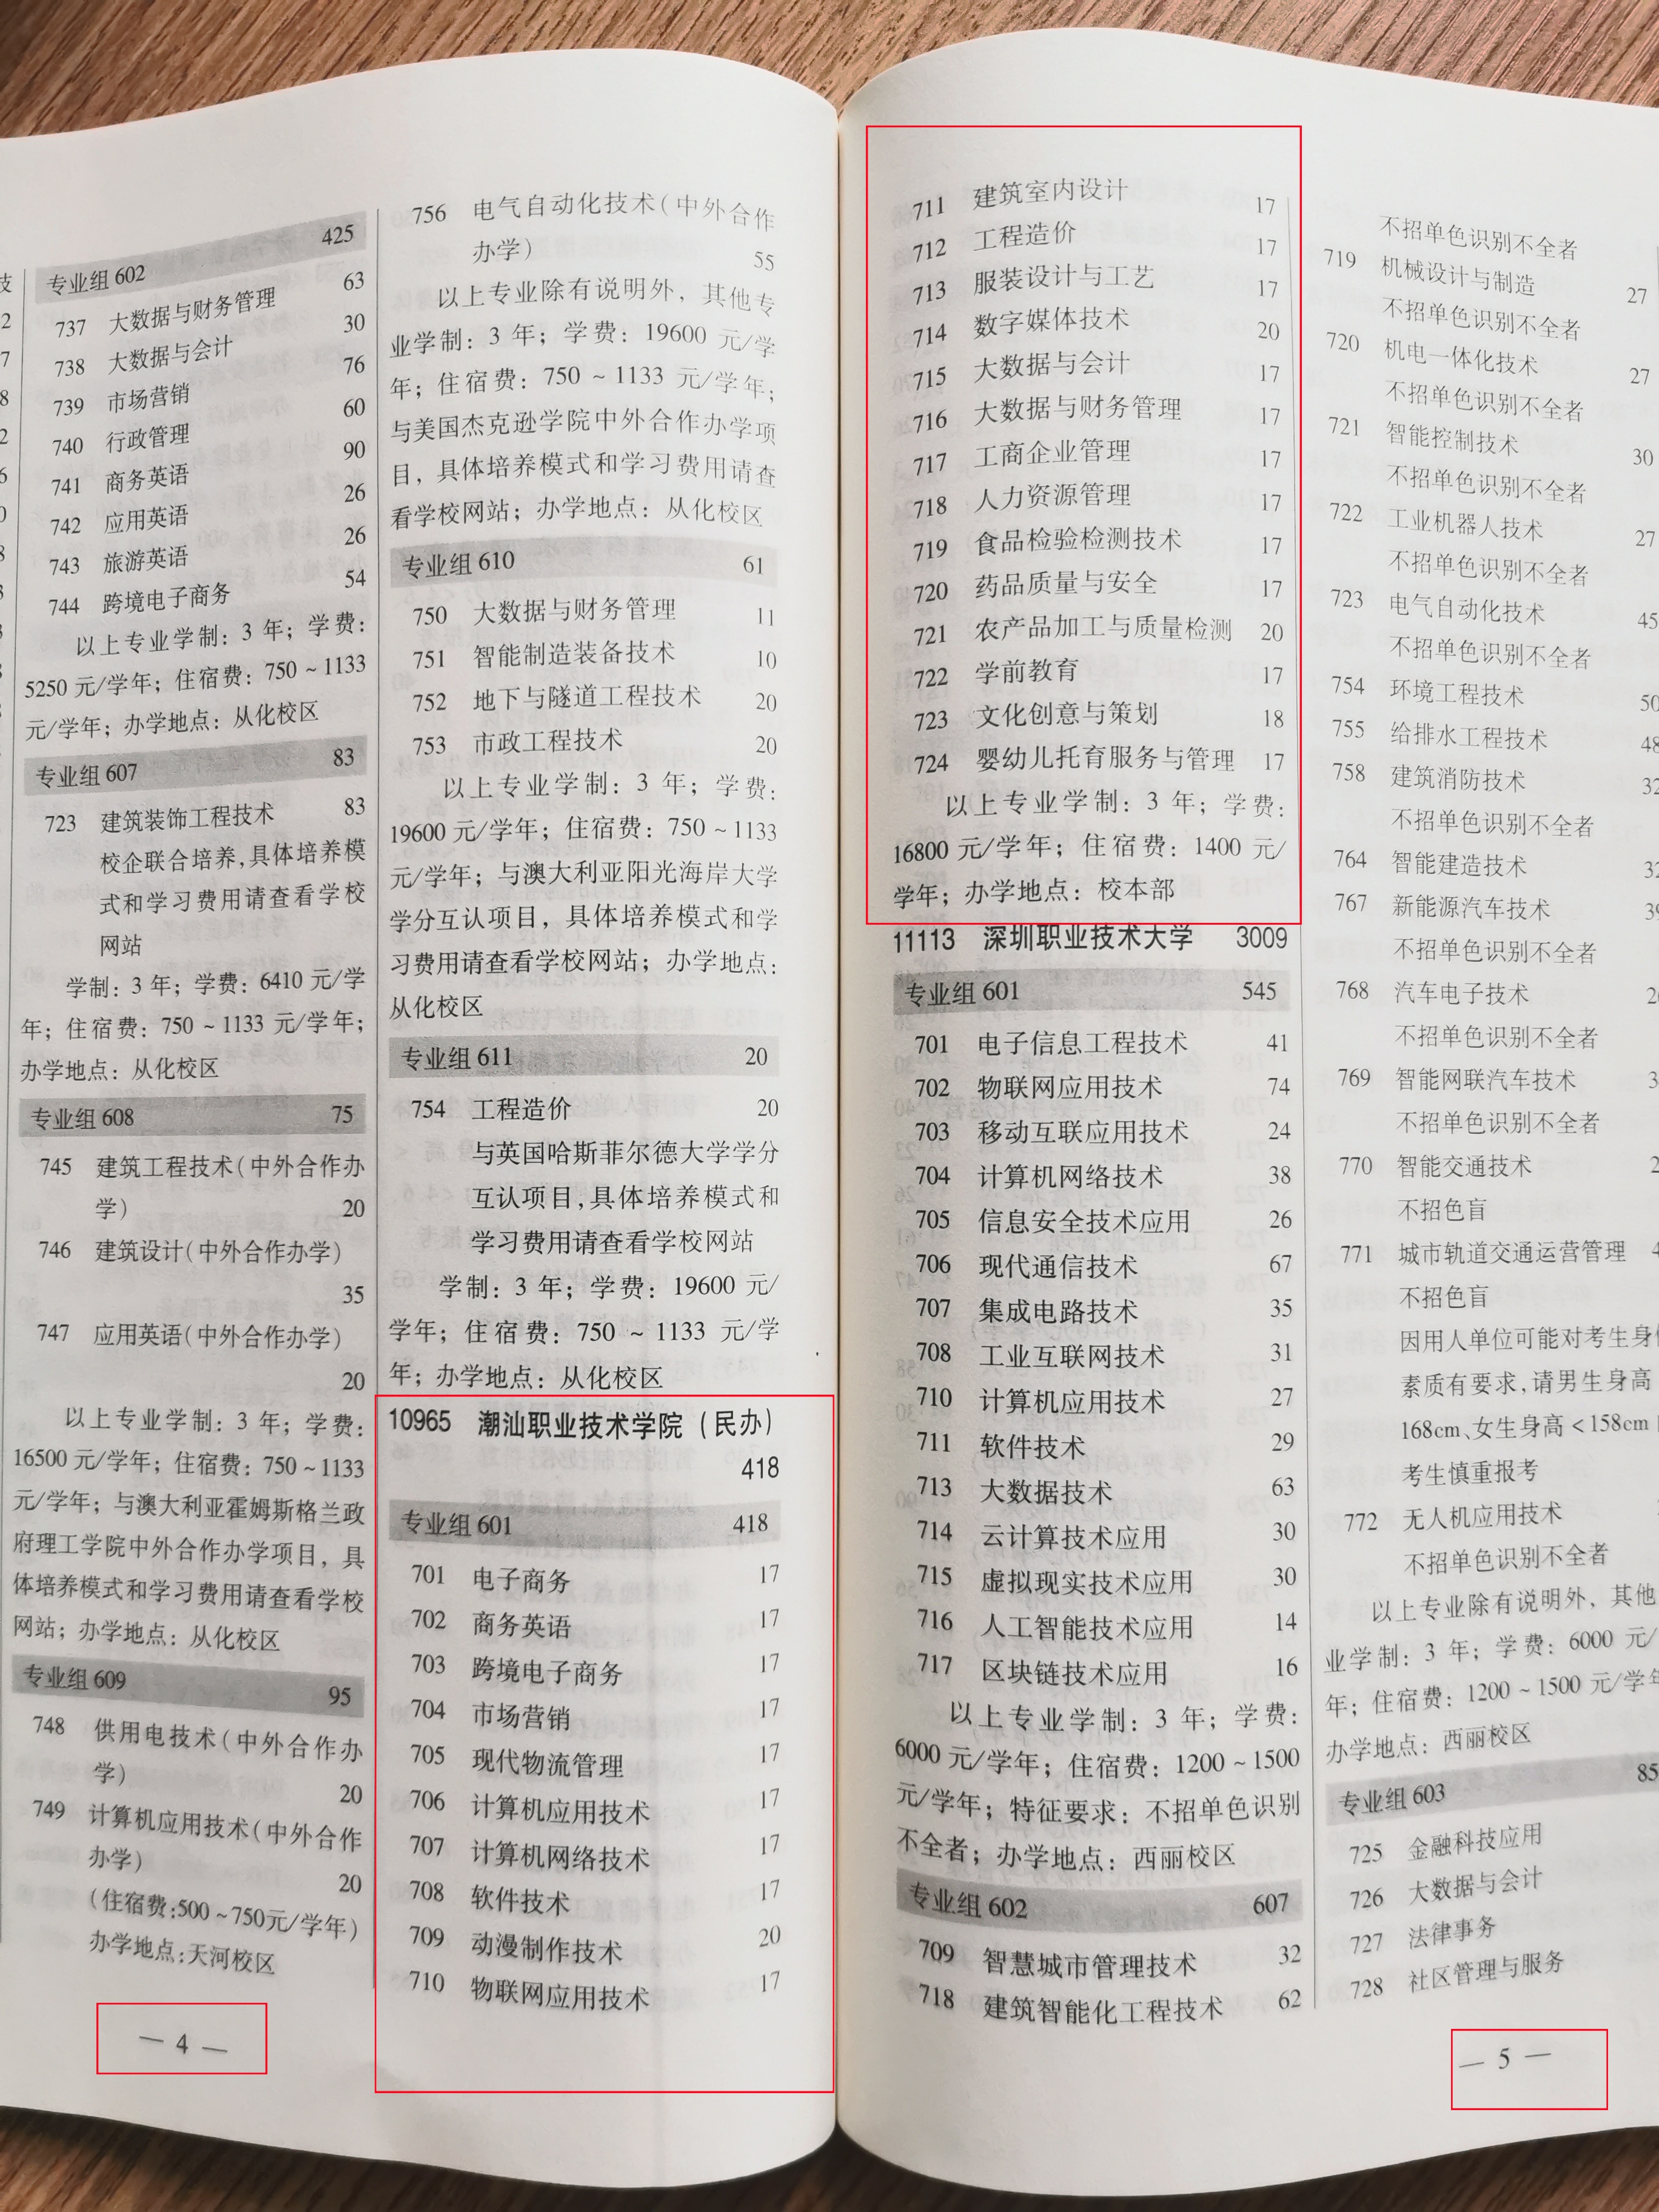 技
2
7
8
2
6
0
8
3
专业组 602 425
737 大数据与财务管理 63
738 大数据与会计 30
739 市场营销 76
740 行政管理 60
741 商务英语 90
742 应用英语 26
743 旅游英语 26
744 跨境电子商务 54
以上专业学制：3 年；学费：
5250 元/学年；住宿费：750 ~ 1133
元/学年；办学地点：从化校区
专业组 607 83
723 建筑装饰工程技术 83
校企联合培养,具体培养模
式和学习费用请查看学校
网站
学制：3 年；学费：6410 元/学
年；住宿费：750 ~ 1133 元/学年；
办学地点：从化校区
专业组 608 75
745 建筑工程技术(中外合作办
学) 20
746 建筑设计(中外合作办学)
35
747 应用英语(中外合作办学)
20
以上专业学制：3 年；学费：
16500 元/学年；住宿费：750 ~ 1133
元/学年；与澳大利亚霍姆斯格兰政
府理工学院中外合作办学项目，具
体培养模式和学习费用请查看学校
网站；办学地点：从化校区
专业组 609 95
748 供用电技术(中外合作办
学) 20
749 计算机应用技术(中外合作
办学) 20
(住宿费:500 ~750元/学年)
办学地点:天河校区
— 4 —
756 电气自动化技术(中外合作
办学) 55
以上专业除有说明外，其他专
业学制：3 年；学费：19600 元/学
年；住宿费：750 ~ 1133 元/学年；
与美国杰克逊学院中外合作办学项
目，具体培养模式和学习费用请查
看学校网站；办学地点：从化校区
专业组 610 61
750 大数据与财务管理 11
751 智能制造装备技术 10
752 地下与隧道工程技术 20
753 市政工程技术 20
以上专业学制：3 年；学费：
19600 元/学年；住宿费：750 ~ 1133
元/学年；与澳大利亚阳光海岸大学
学分互认项目，具体培养模式和学
习费用请查看学校网站；办学地点：
从化校区
专业组 611 20
754 工程造价 20
与英国哈斯菲尔德大学学分
互认项目,具体培养模式和
学习费用请查看学校网站
学制：3 年；学费：19600 元/
学年；住宿费：750 ~ 1133 元/学
年；办学地点：从化校区
10965 潮汕职业技术学院（民办）
418
专业组 601 418
701 电子商务 17
702 商务英语 17
703 跨境电子商务 17
704 市场营销 17
705 现代物流管理 17
706 计算机应用技术 17
707 计算机网络技术 17
708 软件技术 17
709 动漫制作技术 20
710 物联网应用技术 17
711 建筑室内设计 17
712 工程造价 17
713 服装设计与工艺 17
714 数字媒体技术 20
715 大数据与会计 17
716 大数据与财务管理 17
717 工商企业管理 17
718 人力资源管理 17
719 食品检验检测技术 17
720 药品质量与安全 17
721 农产品加工与质量检测 20
722 学前教育 17
723 文化创意与策划 18
724 婴幼儿托育服务与管理 17
以上专业学制：3 年；学费：
16800 元/学年；住宿费：1400 元/
学年；办学地点：校本部
11113 深圳职业技术大学 3009
专业组 601 545
701 电子信息工程技术 41
702 物联网应用技术 74
703 移动互联应用技术 24
704 计算机网络技术 38
705 信息安全技术应用 26
706 现代通信技术 67
707 集成电路技术 35
708 工业互联网技术 31
710 计算机应用技术 27
711 软件技术 29
713 大数据技术 63
714 云计算技术应用 30
715 虚拟现实技术应用 30
716 人工智能技术应用 14
717 区块链技术应用 16
以上专业学制：3 年；学费：
6000 元/学年；住宿费：1200 ~ 1500
元/学年；特征要求：不招单色识别
不全者；办学地点：西丽校区
专业组 602 607
709 智慧城市管理技术 32
718 建筑智能化工程技术 62
不招单色识别不全者
719 机械设计与制造 27
不招单色识别不全者
720 机电一体化技术 27
不招单色识别不全者
721 智能控制技术 30
不招单色识别不全者
722 工业机器人技术 27
不招单色识别不全者
723 电气自动化技术 45
不招单色识别不全者
754 环境工程技术 50
755 给排水工程技术 48
758 建筑消防技术 32
不招单色识别不全者
764 智能建造技术 32
767 新能源汽车技术 39
不招单色识别不全者
768 汽车电子技术 2
不招单色识别不全者
769 智能网联汽车技术 3
不招单色识别不全者
770 智能交通技术 2
不招色盲
771 城市轨道交通运营管理 4
不招色盲
因用人单位可能对考生身
素质有要求,请男生身高
168cm、女生身高 < 158cm
考生慎重报考
772 无人机应用技术
不招单色识别不全者
以上专业除有说明外，其他
业学制：3 年；学费：6000 元/
年；住宿费：1200 ~ 1500 元/学年
办学地点：西丽校区
专业组 603 85
725 金融科技应用
726 大数据与会计
727 法律事务
728 社区管理与服务
— 5 —